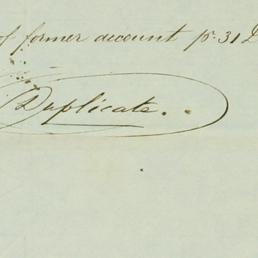 of former account pr. 31 D
Duplicate.